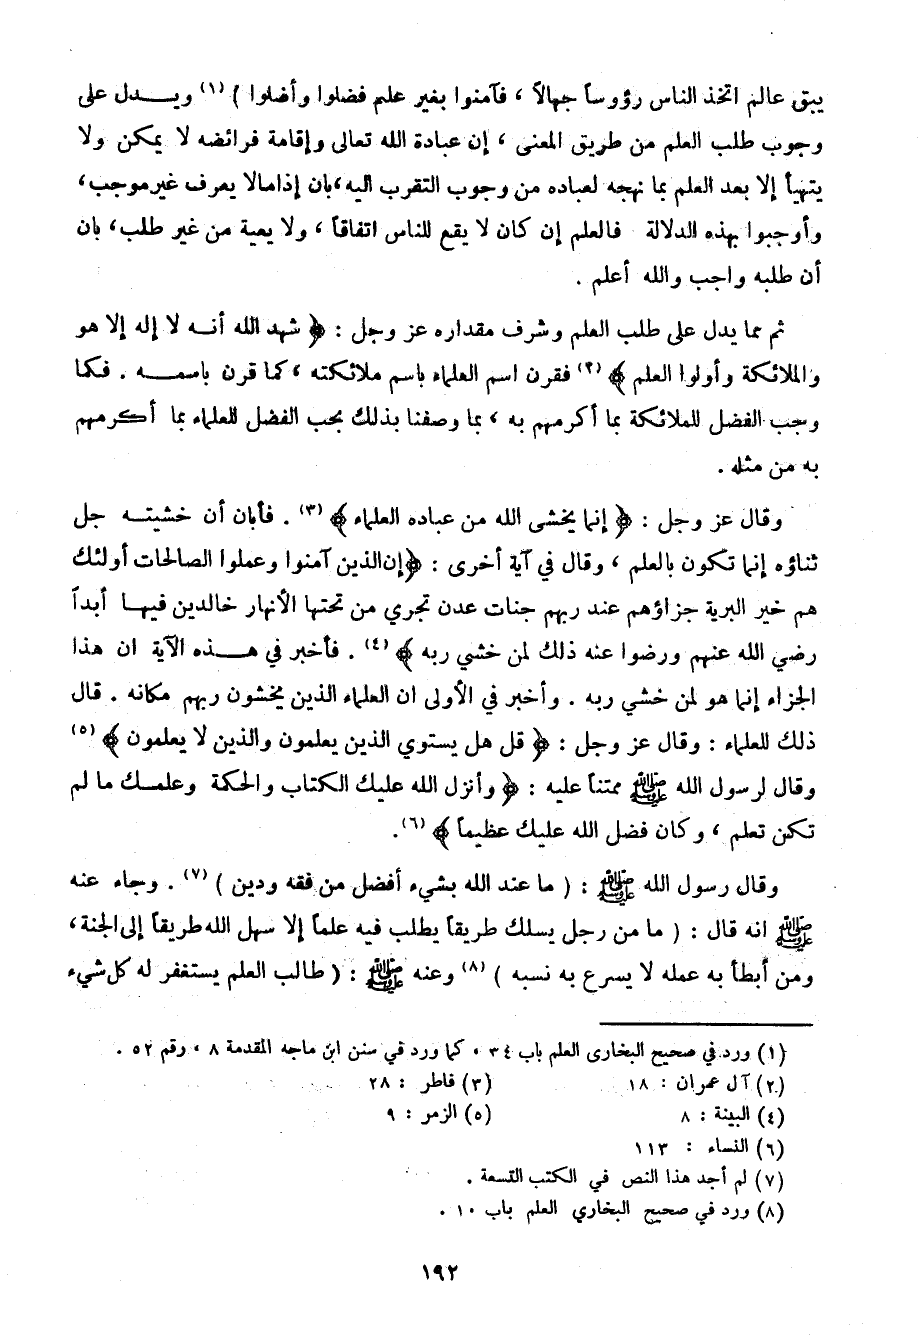 يبق عالم اتخذ الناس رؤوساً جهالاً ، فآمنوا بغير علم فضلوا وأضلوا ) (١) ويـــدل على
وجوب طلب العلم من طريق المعنى ، إن عبادة الله تعالى وإقامة فرائضه لا يمكن ولا
يتهيأ إلا بعد العلم بما نهجه لعباده من وجوب التقرب اليه ، بان إذا مالا يعرف غير موجب ،
وأوجبوا بهذه الدلالة فالعلم إن كان لا يقع للناس اتفاقاً ، ولا يعية من غير طلب ، بان
أن طلبه واجب والله أعلم .
ثم مما يدل على طلب العلم وشرف مقداره عز وجل : ﴿ شهد الله أنــه لا إله إلا هو
والملائكة وأولوا العلم ﴾ (٢) فقرن اسم العلماء باسم ملائكته ، كما قرن باسمــه . فكما
وجب الفضل للملائكة بما أكرمهم به ، بما وصفنا بذلك يجب الفضل للعلماء بما أكرمهم
به من مثله .
وقال عز وجل : ﴿ إنما يخشى الله من عباده العلماء ﴾ (٣) . فأبان أن خشيتــه جل
ثناؤه إنما تكون بالعلم ، وقال في آية أخرى : ﴿ إن الذين آمنوا وعملوا الصالحات أولئك
هم خير البرية جزاؤهم عند ربهم جنات عدن تجري من تحتها الأنهار خالدين فيهــا أبداً
رضي الله عنهم ورضوا عنه ذلك لمن خشي ربه ﴾ (٤) . فأخبر في هـــذه الآية ان هذا
الجزاء إنما هو لمن خشي ربه . وأخبر في الأولى ان العلماء الذين يخشون ربهم مكانه . قال
ذلك للعلماء : وقال عز وجل : ﴿ قل هل يستوي الذين يعلمون والذين لا يعلمون ﴾ (٥)
وقال لرسول الله ﷺ ممتناً عليه : ﴿ وأنزل الله عليك الكتاب والحكمة وعلمــك ما لم
تكن تعلم ، وكان فضل الله عليك عظيماً ﴾ (٦) .
وقال رسول الله ﷺ : ( ما عند الله بشيء أفضل من فقه ودين ) (٧) . وجاء عنه
ﷺ انه قال : ( ما من رجل يسلك طريقاً يطلب فيه علماً إلا سهل الله طريقاً إلى الجنة ،
ومن أبطأ به عمله لا يسرع به نسبه ) (٨) وعنه ﷺ : ( طالب العلم يستغفر له كل شيء
(١) ورد في صحيح البخارى العلم باب ٣٤ ، كما ورد في سنن ابن ماجه المقدمة ٨ ، رقم ٥٢ .
(٢) آل عمران : ١٨ (٣) فاطر : ٢٨
(٤) البينة : ٨ (٥) الزمر : ٩
(٦) النساء : ١١٣
(٧) لم أجد هذا النص في الكتب التسعة .
(٨) ورد في صحيح البخاري العلم باب ١٠ .
١٩٢